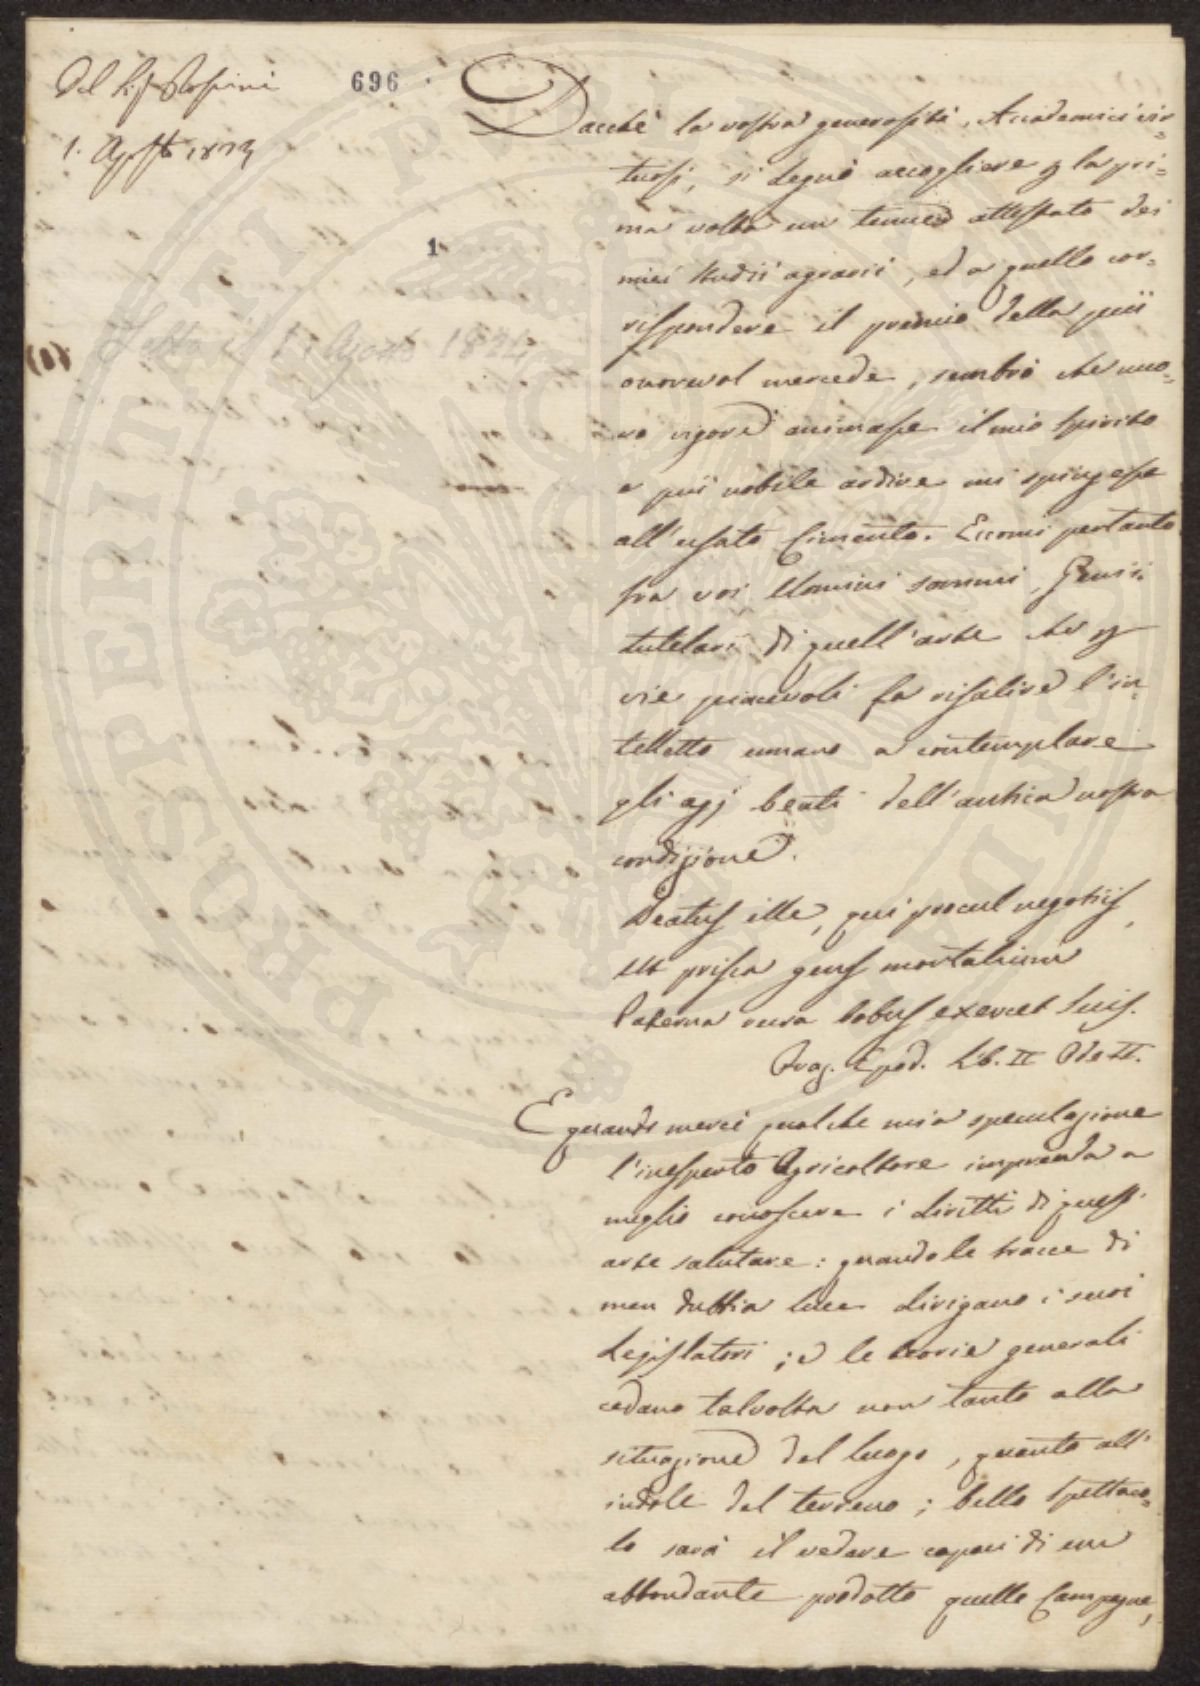 Del Sig.
696
1. Agosto 1823
1.
Letta il 1. Agosto 1824
Dacchè la vostra generosità, Accademici vir-
tuosi, si degnò accogliere p la pri-
ma volta un tenue attestato dei
miei studii agrarii, ed a quello cor-
rispondere il premio della più
onorevol mercede, sembrò che nuo-
vo vigore animasse il mio spirito
e più nobile ardire mi spingesse
all'usato Cimento. Eccomi pertanto
fra voi, Uomini sommi, Genii
tutelari di quell'arte che p
vie piacevoli fa risalire l'in-
telletto umano a contemplare
gli agj beati dell'antica nostra
condizione.
Beatus ille, qui procul negotiis,
Ut prisca gens mortalium
Paterna rura bobus exercet suis.
Oraz. Epod. Lib. II Ode II.
E quando mercè qualche mia speculazione
l'inesperto Agricoltore imprenda a
meglio conoscere i diritti di quest'
arte salutare: quando le tracce di
men dubbia luce dirigano i suoi
Legislatori; e le teorie generali
cedano talvolta non tanto alla
situazione del luogo, quanto all'
indole del terreno; bello spettaco-
lo sarà il vedere capaci di un
abbondante prodotto quelle Campagne,
PROSPERITATI PUBLICAE AUGENDAE